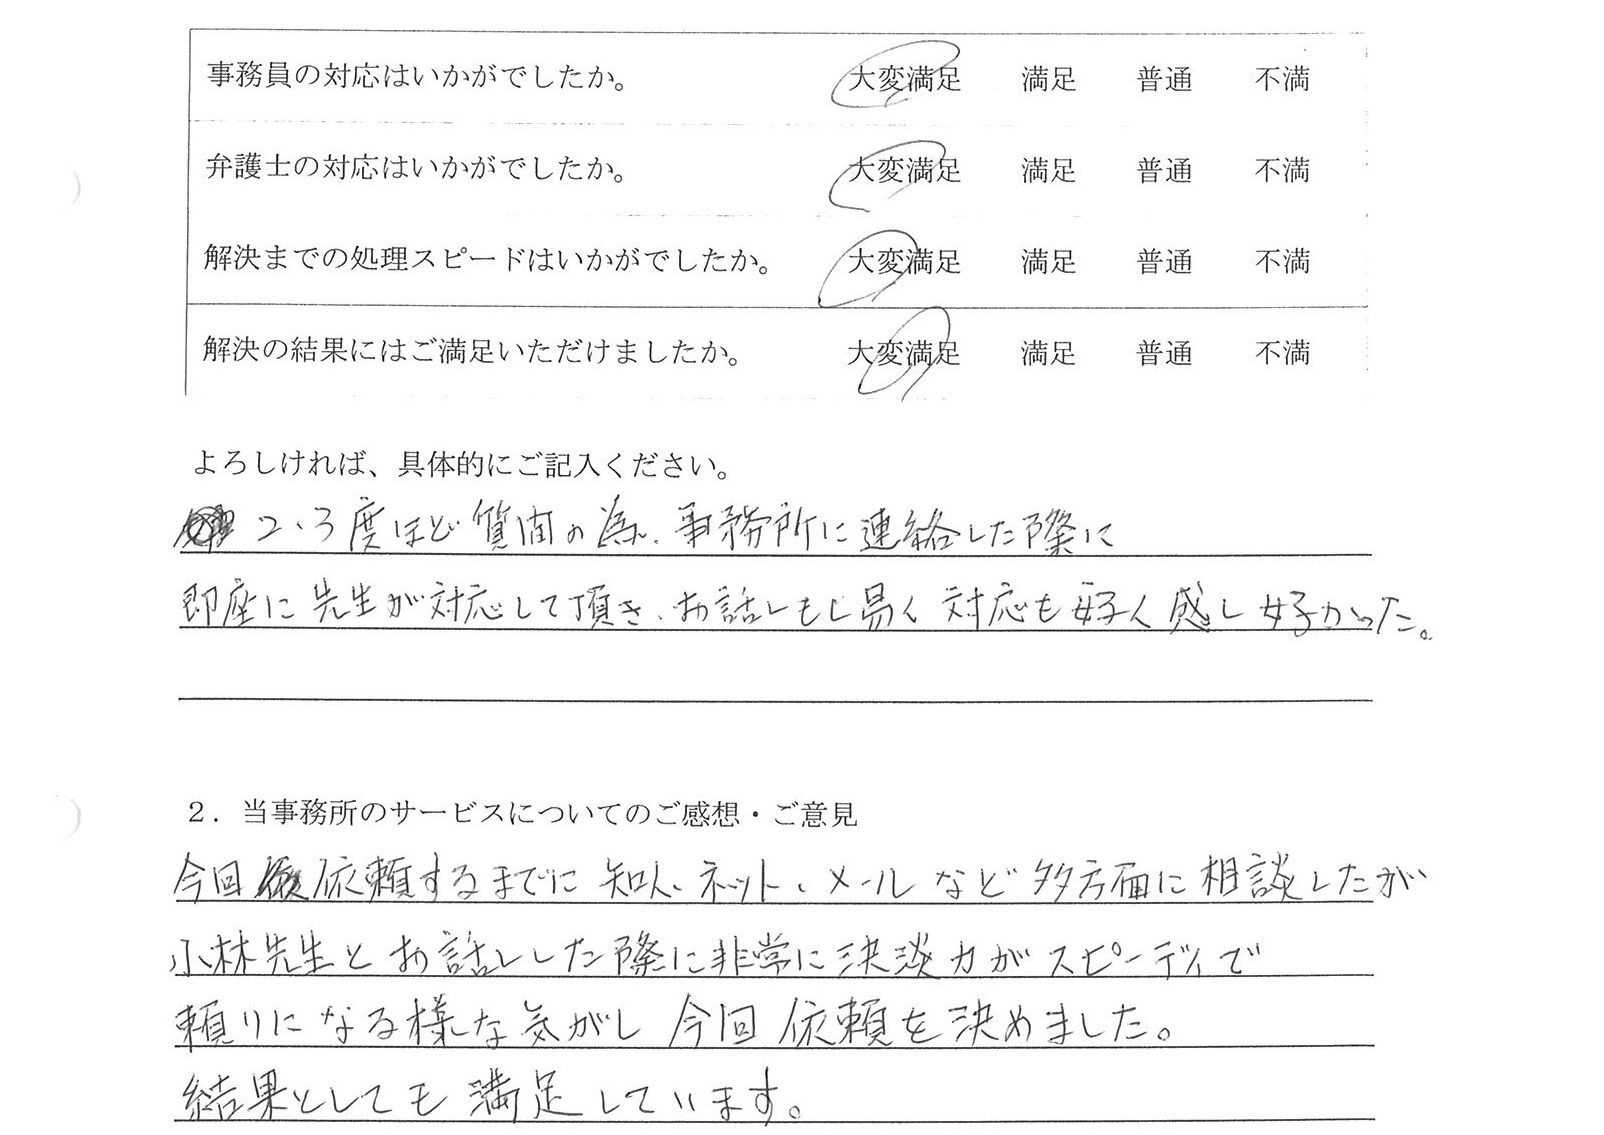 事務員の対応はいかがでしたか。 大変満足 満足 普通 不満
弁護士の対応はいかがでしたか。 大変満足 満足 普通 不満
解決までの処理スピードはいかがでしたか。 大変満足 満足 普通 不満
解決の結果にはご満足いただけましたか。 大変満足 満足 普通 不満
よろしければ、具体的にご記入ください。
2、3度ほど質問の為、事務所に連絡した際に
即座に先生が対応して頂き、お話しもし易く対応も好く感じ好かった。
2．当事務所のサービスについてのご感想・ご意見
今回依頼するまでに知人、ネット、メールなど多方面に相談したが
小林先生とお話しした際に非常に決談力がスピーディで
頼りになる様な気がし今回依頼を決めました。
結果としても満足しています。